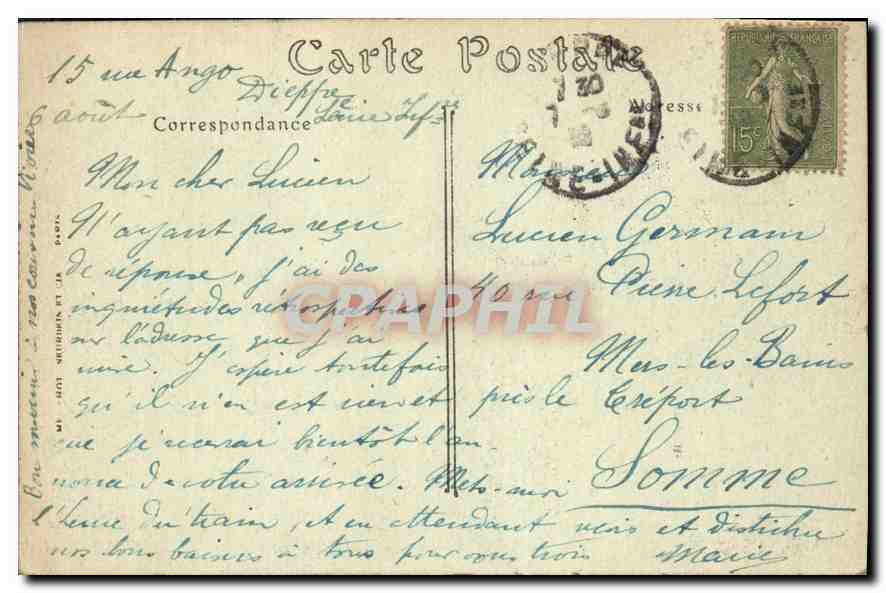 Carte Postale
15 rue Ango
Dieppe
6 août
Correspondance
Adresse
RÉPUBLIQUE FRANÇAISE
15c
Mon cher Lucien
N'ayant pas reçu
de réponse, j'ai des
inquiétudes rétrospectives
sur l'adresse que j'ai
mise. J'espère toutefois
qu'il n'en est rien et
que je recevrai bientôt l'an
nonce de votre arrivée. Mets-moi
l'heure du train, et en attendant reçois et distribue
nos bons baisers à tous pour vous trois Marie
Monsieur
Lucien Germain
40 rue Pierre Lefort
Mers-les-Bains
près le Tréport
Somme
CPAPHIL
NEURDEIN ET CIE PARIS